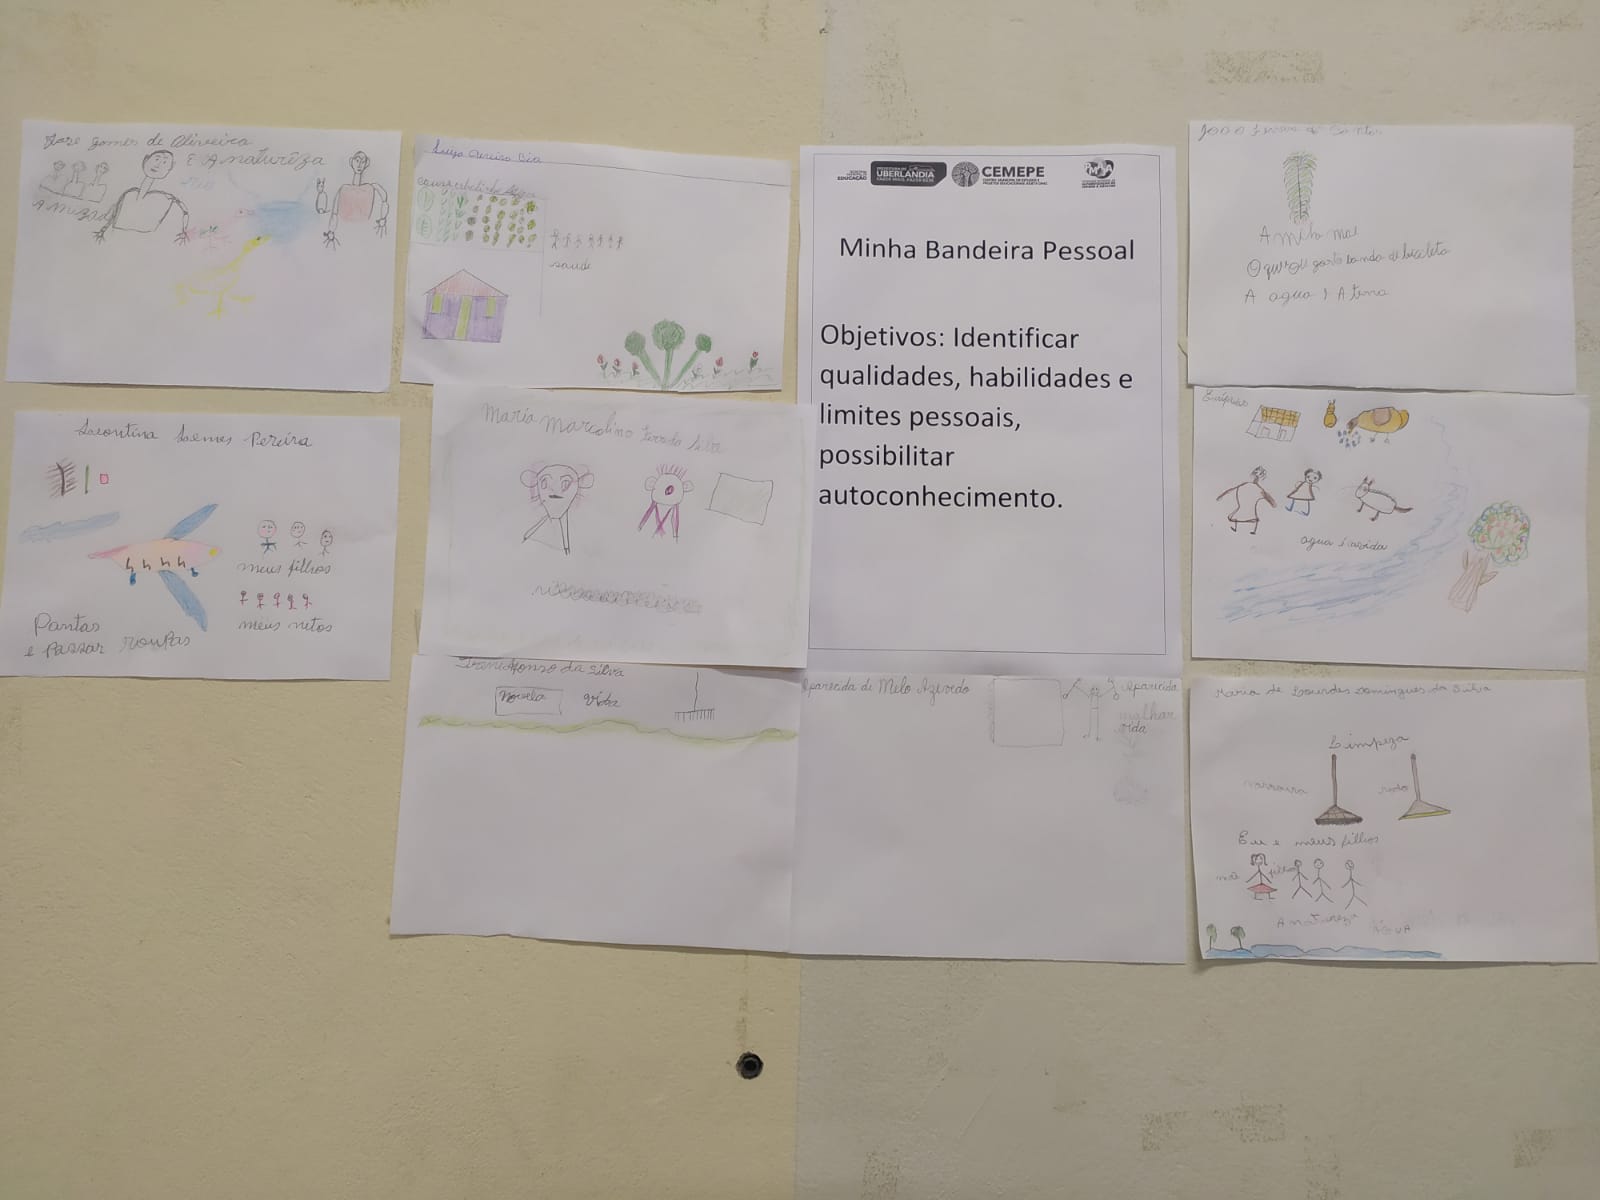 Jose Gomes de Oliveira
E A natureza
rio
A mizad
Luiza Pereira Dia
saude
UBERLÂNDIA
EDUCAÇÃO
CEMEPE
Minha Bandeira Pessoal
Objetivos: Identificar
qualidades, habilidades e
limites pessoais,
possibilitar
autoconhecimento.
João
A minha mai
O que gosto
A agua
Laontina Lemes Pereira
meus filhos
meus netos
Pantas
e Passar roupas
Maria Marcolino da Silva
Euripedes
agua é a vida
Afonso da Silva
novela
vida
Aparecida de Melo Azevedo
Aparecida
malhar
vida
Maria de Lourdes Domingues da Silva
Limpeza
varroura
rodo
Eu e meus filhos
mãe
filhos
A natureza
ÁGUA